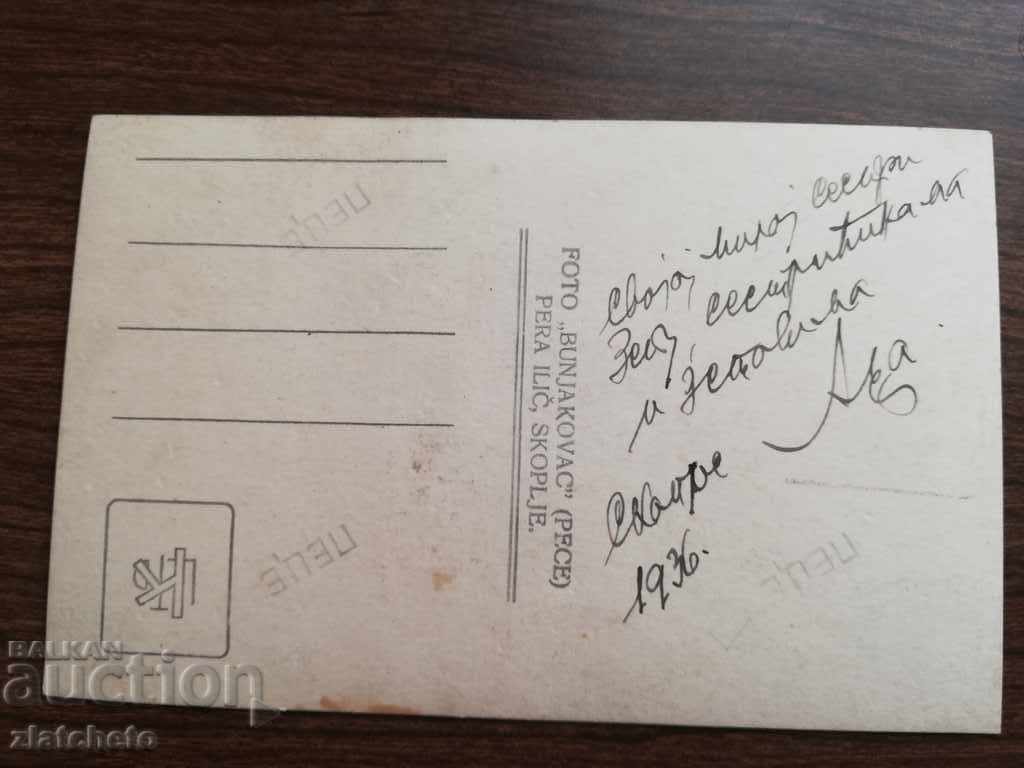 ПЕЦЕ
FOTO „BUNJAKOVAC” (PECE)
PERA ILIČ, SKOPLJE.
ПЕЦЕ
ПЕЦЕ
Својој милој сестри
Зету, сестрићикама
и зетовима
Аца
Скопље
1936.
BALKAN
auction
zlatcheto